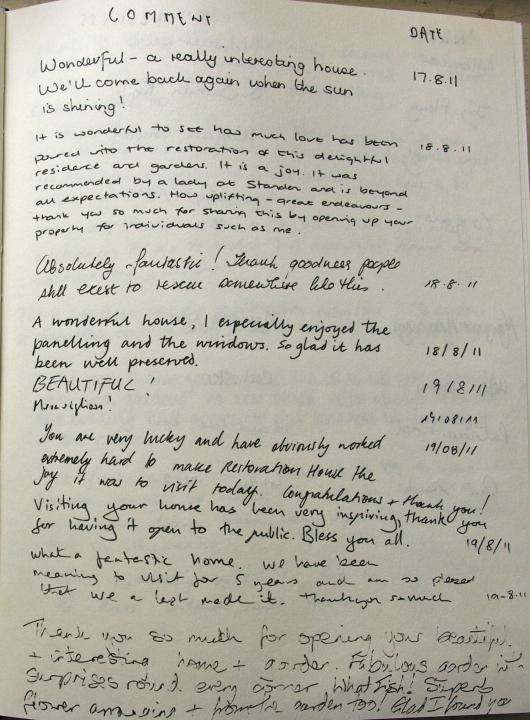 COMMENT DATE
Wonderful - a really interesting house. 17.8.11
We'll come back again when the sun
is shining!
It is wonderful to see how much love has been 18.8.11
poured into the restoration of this delightful
residence and gardens. It is a joy. It was
recommended by a lady at Standen and is beyond
all expectations. How uplifting - great endeavours -
thank you so much for sharing this by opening up your
property for individuals such as me.
Absolutely fantastic! Thank goodness people
still exist to rescue somewhere like this. 18.8.11
A wonderful house, I especially enjoyed the
panelling and the windows. So glad it has
been well preserved. 18/8/11
BEAUTIFUL! 19/8/11
19/08/11
You are very lucky and have obviously worked 19/08/11
extremely hard to make Restoration House the
joy it was to visit today. Congratulations + thank you!
Visiting your house has been very inspiring, thank you
for having it open to the public. Bless you all. 19/8/11
What a fantastic home. We have been
meaning to visit for 5 years and am so pleased
that we a last made it. Thankyou so much 19-8.11
Thank you so much for opening your beautiful
+ interesting home + garden. Fabulous garden
surprises round every corner, What fish! Superb
flower arranging + garden too! Glad I found you